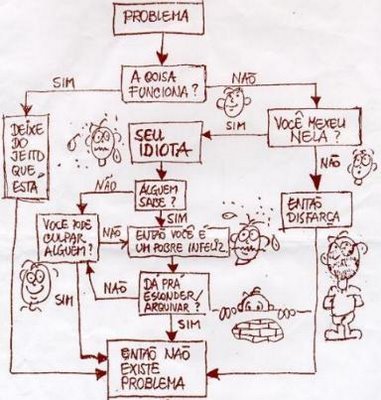 PROBLEMA
A COISA
FUNCIONA?
SIM
NÃO
DEIXE
DO
JEITO
QUE
ESTÁ
SEU
IDIOTA
SIM
VOCÊ MEXEU
NELA?
NÃO
NÃO
ALGUEM
SABE?
SIM
ENTÃO
DISFARÇA
VOCÊ PODE
CULPAR
ALGUÉM?
NÃO
ENTÃO VOCÊ É
UM POBRE INFELIZ.
SIM
NÃO
DÁ PRÁ
ESCONDER/
ARQUIVAR?
SIM
ENTÃO NÃO
EXISTE
PROBLEMA